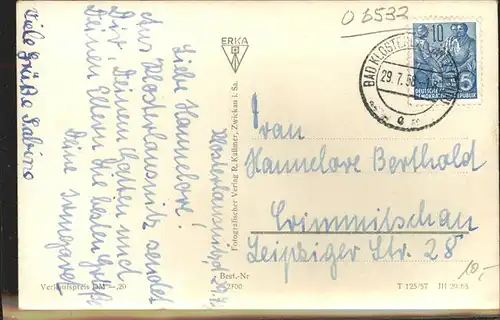 Viele Grüße Sabine
Klosterlausnitz
Liebe Hannelore!
Aus Klosterlausnitz sendet
Dir, Deinem
und
Deinen Eltern die besten Grüße
Deine Irmgard
ERKA
Fotografischer Verlag R. Küllmer, Zwickau i. Sa.
Best.-Nr
Verkaufspreis DM —,20
O 6532
10
5
DEUTSCHE
DEMOKRATISCHE REPUBLIK
BAD KLOSTERLAUSNITZ
29.7.58
a
Frau
Hannelore Berthold
Crimmitschau
Leipziger Str. 28
10,-
T 125/57 III 29/65